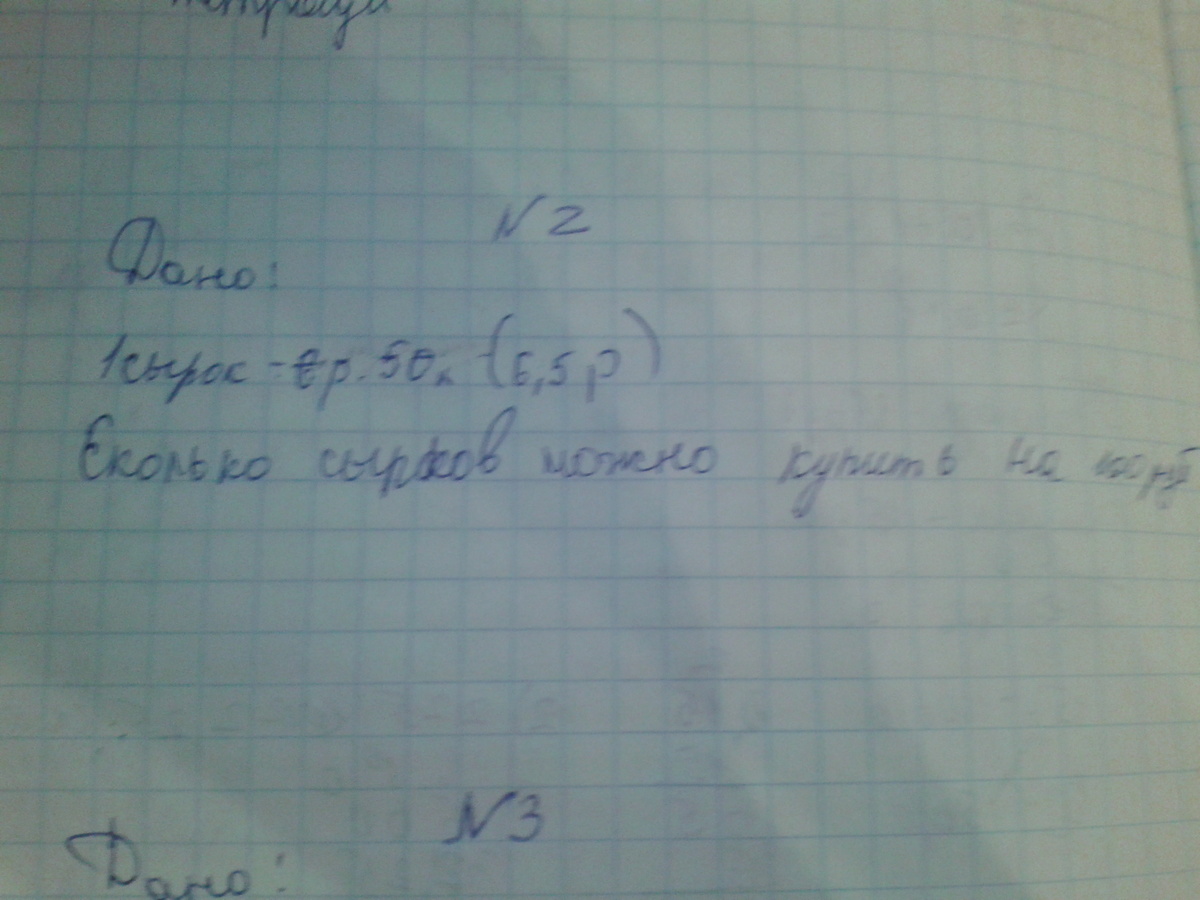 тетради
N2
Дано:
1сырок - 6р. 50к (6,5 р)
Сколько сырков можно купить на
N3
Дано: